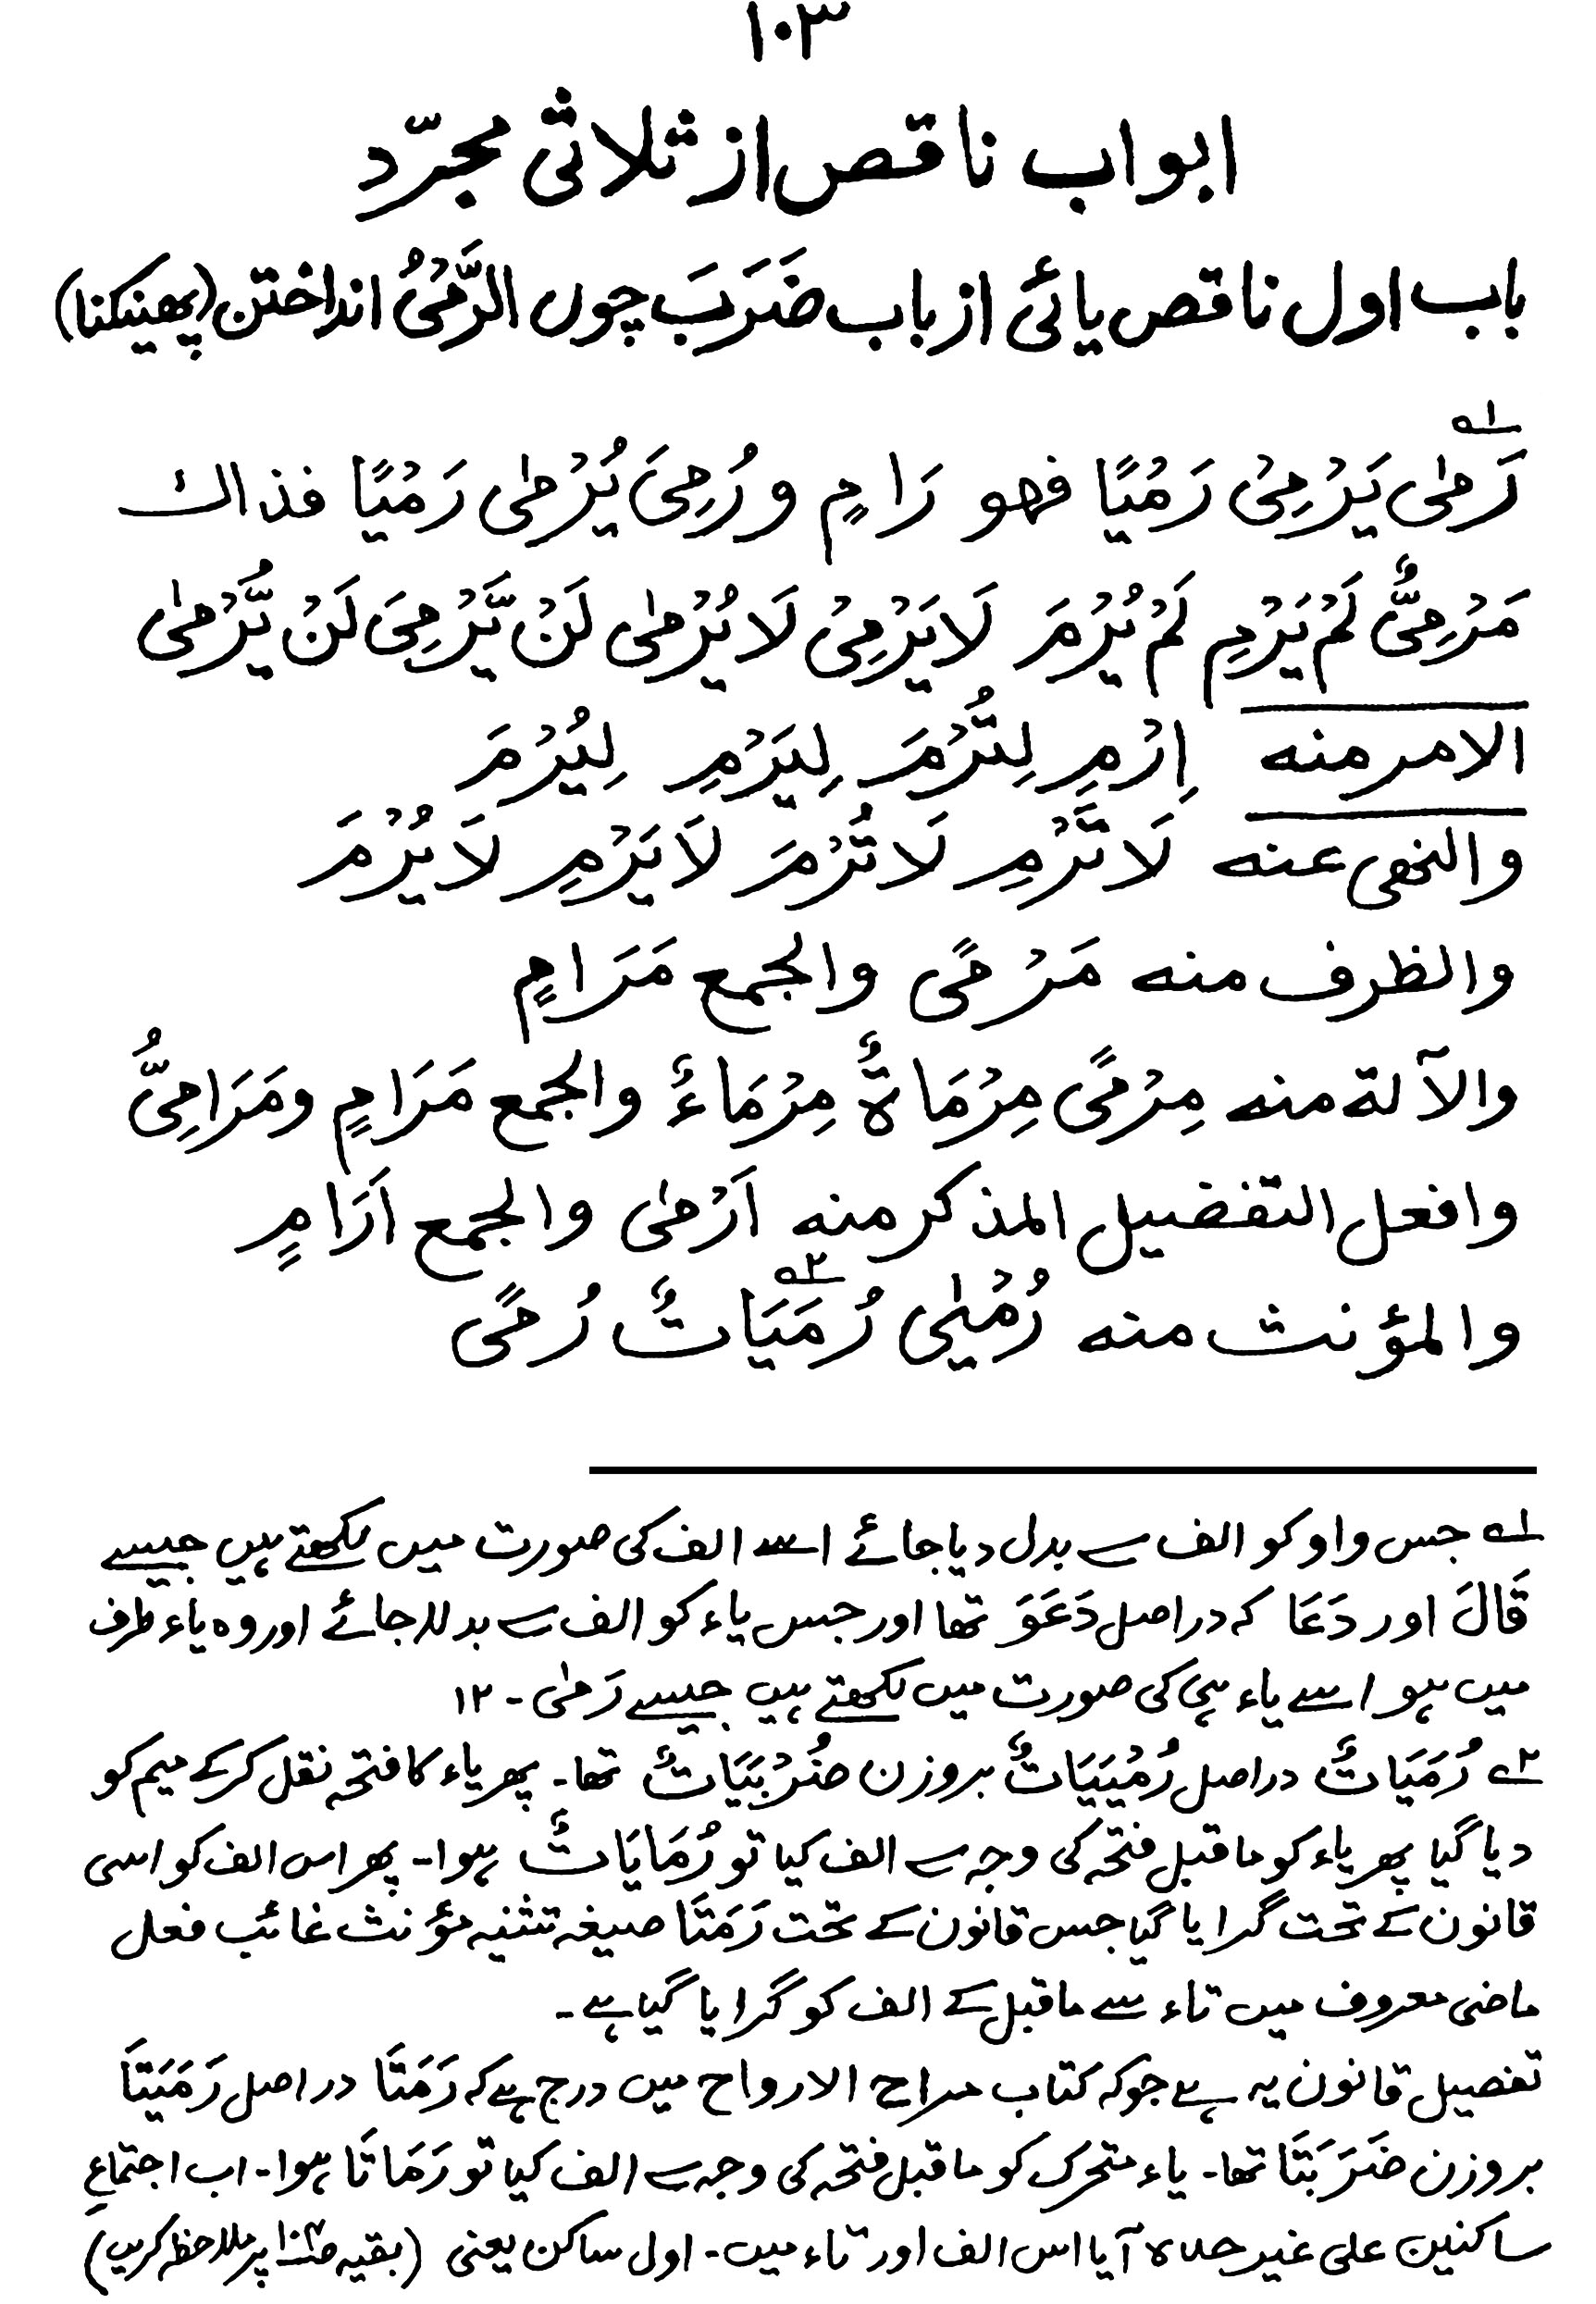 ١٠٣
ابواب ناقص از ثلاثی مجرّد
باب اول ناقص یائی از باب ضَرَبَ چوں الرَّمْیُ انداختن (پھینکنا)
لہ۱
رَمٰی یَرْمِیْ رَمْیًا فھو رَامٍ و رُمِیَ یُرْمٰی رَمْیًا فذاك
مَرْمِیٌّ لَمْ یَرْمِ لَمْ یُرْمَ لَا یَرْمِیْ لَا یُرْمٰی لَنْ یَّرْمِیَ لَنْ یُّرْمٰی
الامر منه اِرْمِ لِتُرْمَ لِیَرْمِ لِیُرْمَ
والنھی عنه لَا تَرْمِ لَا تُرْمَ لَا یَرْمِ لَا یُرْمَ
والظرف منه مَرْمًی والجمع مَرَامٍ
والآلة منه مِرْمًی مِرْمَاةٌ مِرْمَاءٌ والجمع مَرَامٍ ومَرَامِیُّ
وافعل التفضیل المذکر منه اَرْمٰی والجمع اَرَامٍ
والمؤنث منه رُمْیٰی رُمَیَاتٌ۲ رُمًی
۱ے جس واو کو الف سے بدل دیا جائے اسے الف کی صورت میں لکھتے ہیں جیسے
قَالَ اور دَعَا کہ دراصل دَعَوَ تھا اور جس یاء کو الف سے بدلا جائے اور وہ یاء طرف
میں ہو اسے یاء ہی کی صورت میں لکھتے ہیں جیسے رَمٰی ۔ ۱۲
۲ے رُمَیَاتٌ دراصل رُمْیَیَاتٌ بروزن ضُرْبَیَاتٌ تھا۔ پھر یاء کا فتحہ نقل کرکے میم کو
دیا گیا پھر یاء کو ماقبل فتحہ کی وجہ سے الف کیا تو رُمَایَاتٌ ہوا۔ پھر اس الف کو اسی
قانون کے تحت گرایا گیا جس قانون کے تحت رَمَتَا صیغہ تثنیہ مؤنث غائب فعل
ماضی معروف میں تاء سے ماقبل کے الف کو گرایا گیا ہے۔
تفصیل قانون یہ ہے جو کہ کتاب مراح الارواح میں درج ہے کہ رَمَتَا دراصل رَمَیَتَا
بروزن ضَرَبَتَا تھا۔ یاء متحرک کو ماقبل فتحہ کی وجہ سے الف کیا تو رَمَاتَا ہوا۔ اب اجتماعِ
ساکنین علی غیر حدہ آیا اس الف اور تاء میں۔ اول ساکن یعنی (بقیہ صـ۱۰۴ پر ملاحظہ کریں)